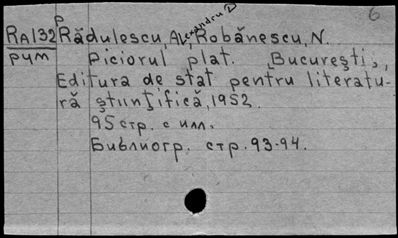 6
P
RA132 Rădulescu, Alexandru D, Robănescu, N.
рум Piciorul plat. București,
Editura de stat pentru literatu-
ră științifică, 1952.
95 стр. с илл.
Библиогр. стр. 93-94.